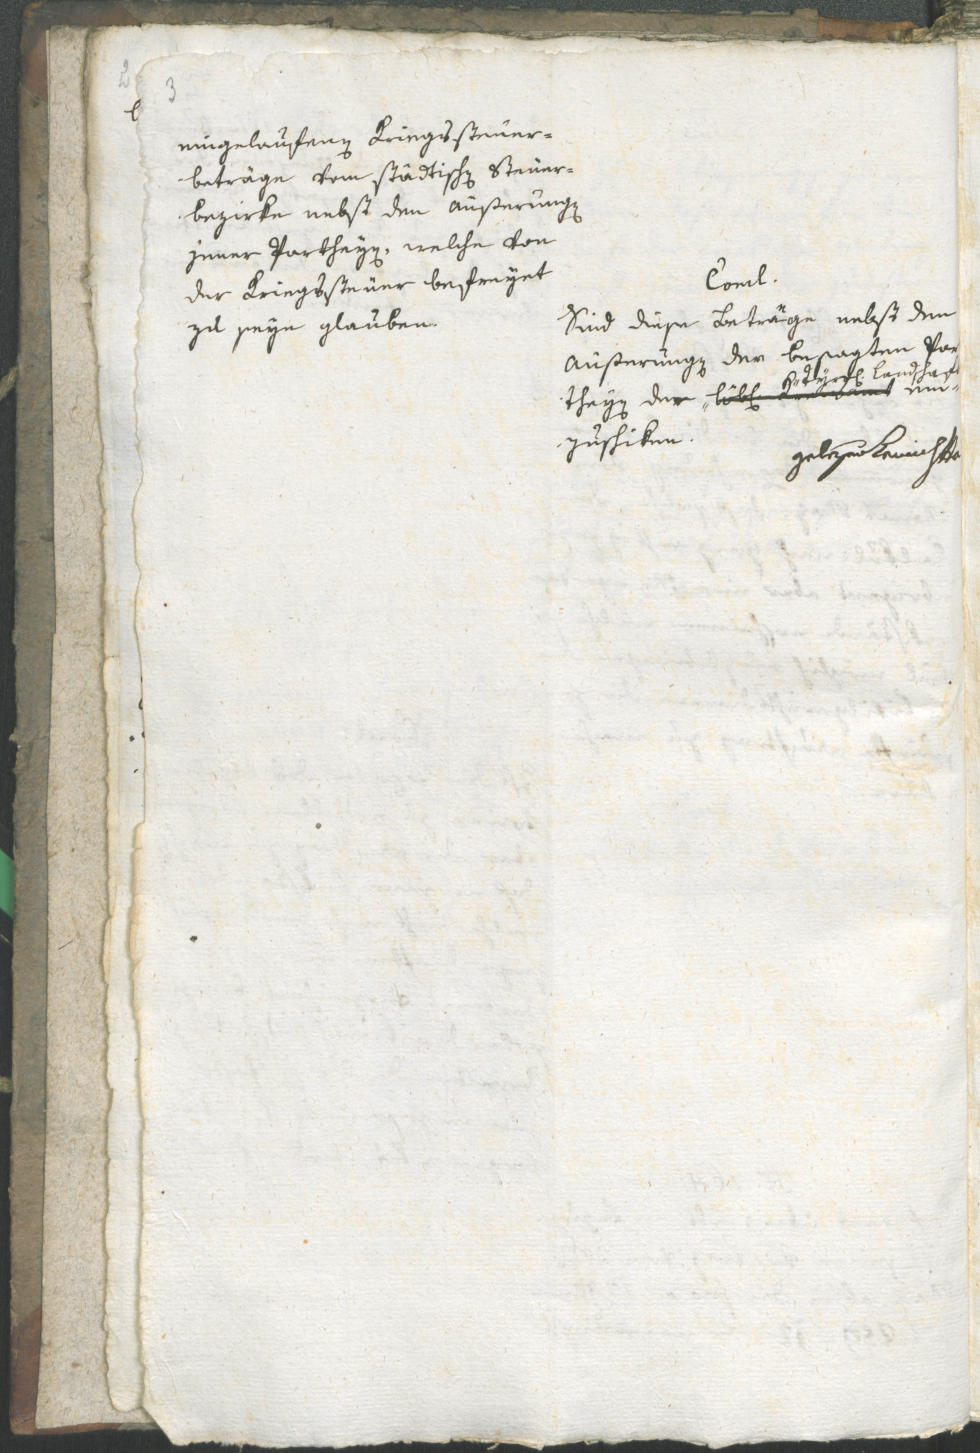 2
3
eingelaufenen Kriegssteuer=
beträge vom städtischen Steuer=
bezirke nebst den Äußerungen
jener Partheyen, welche von
der Kriegssteuer befreyet
zu seyn glauben.
Concl.
Sind diese Beträge nebst den
Äußerungen der besagten Par
theyen der löbl. Kreisamt ein=
tyrol. Landschaft
zuschiken.